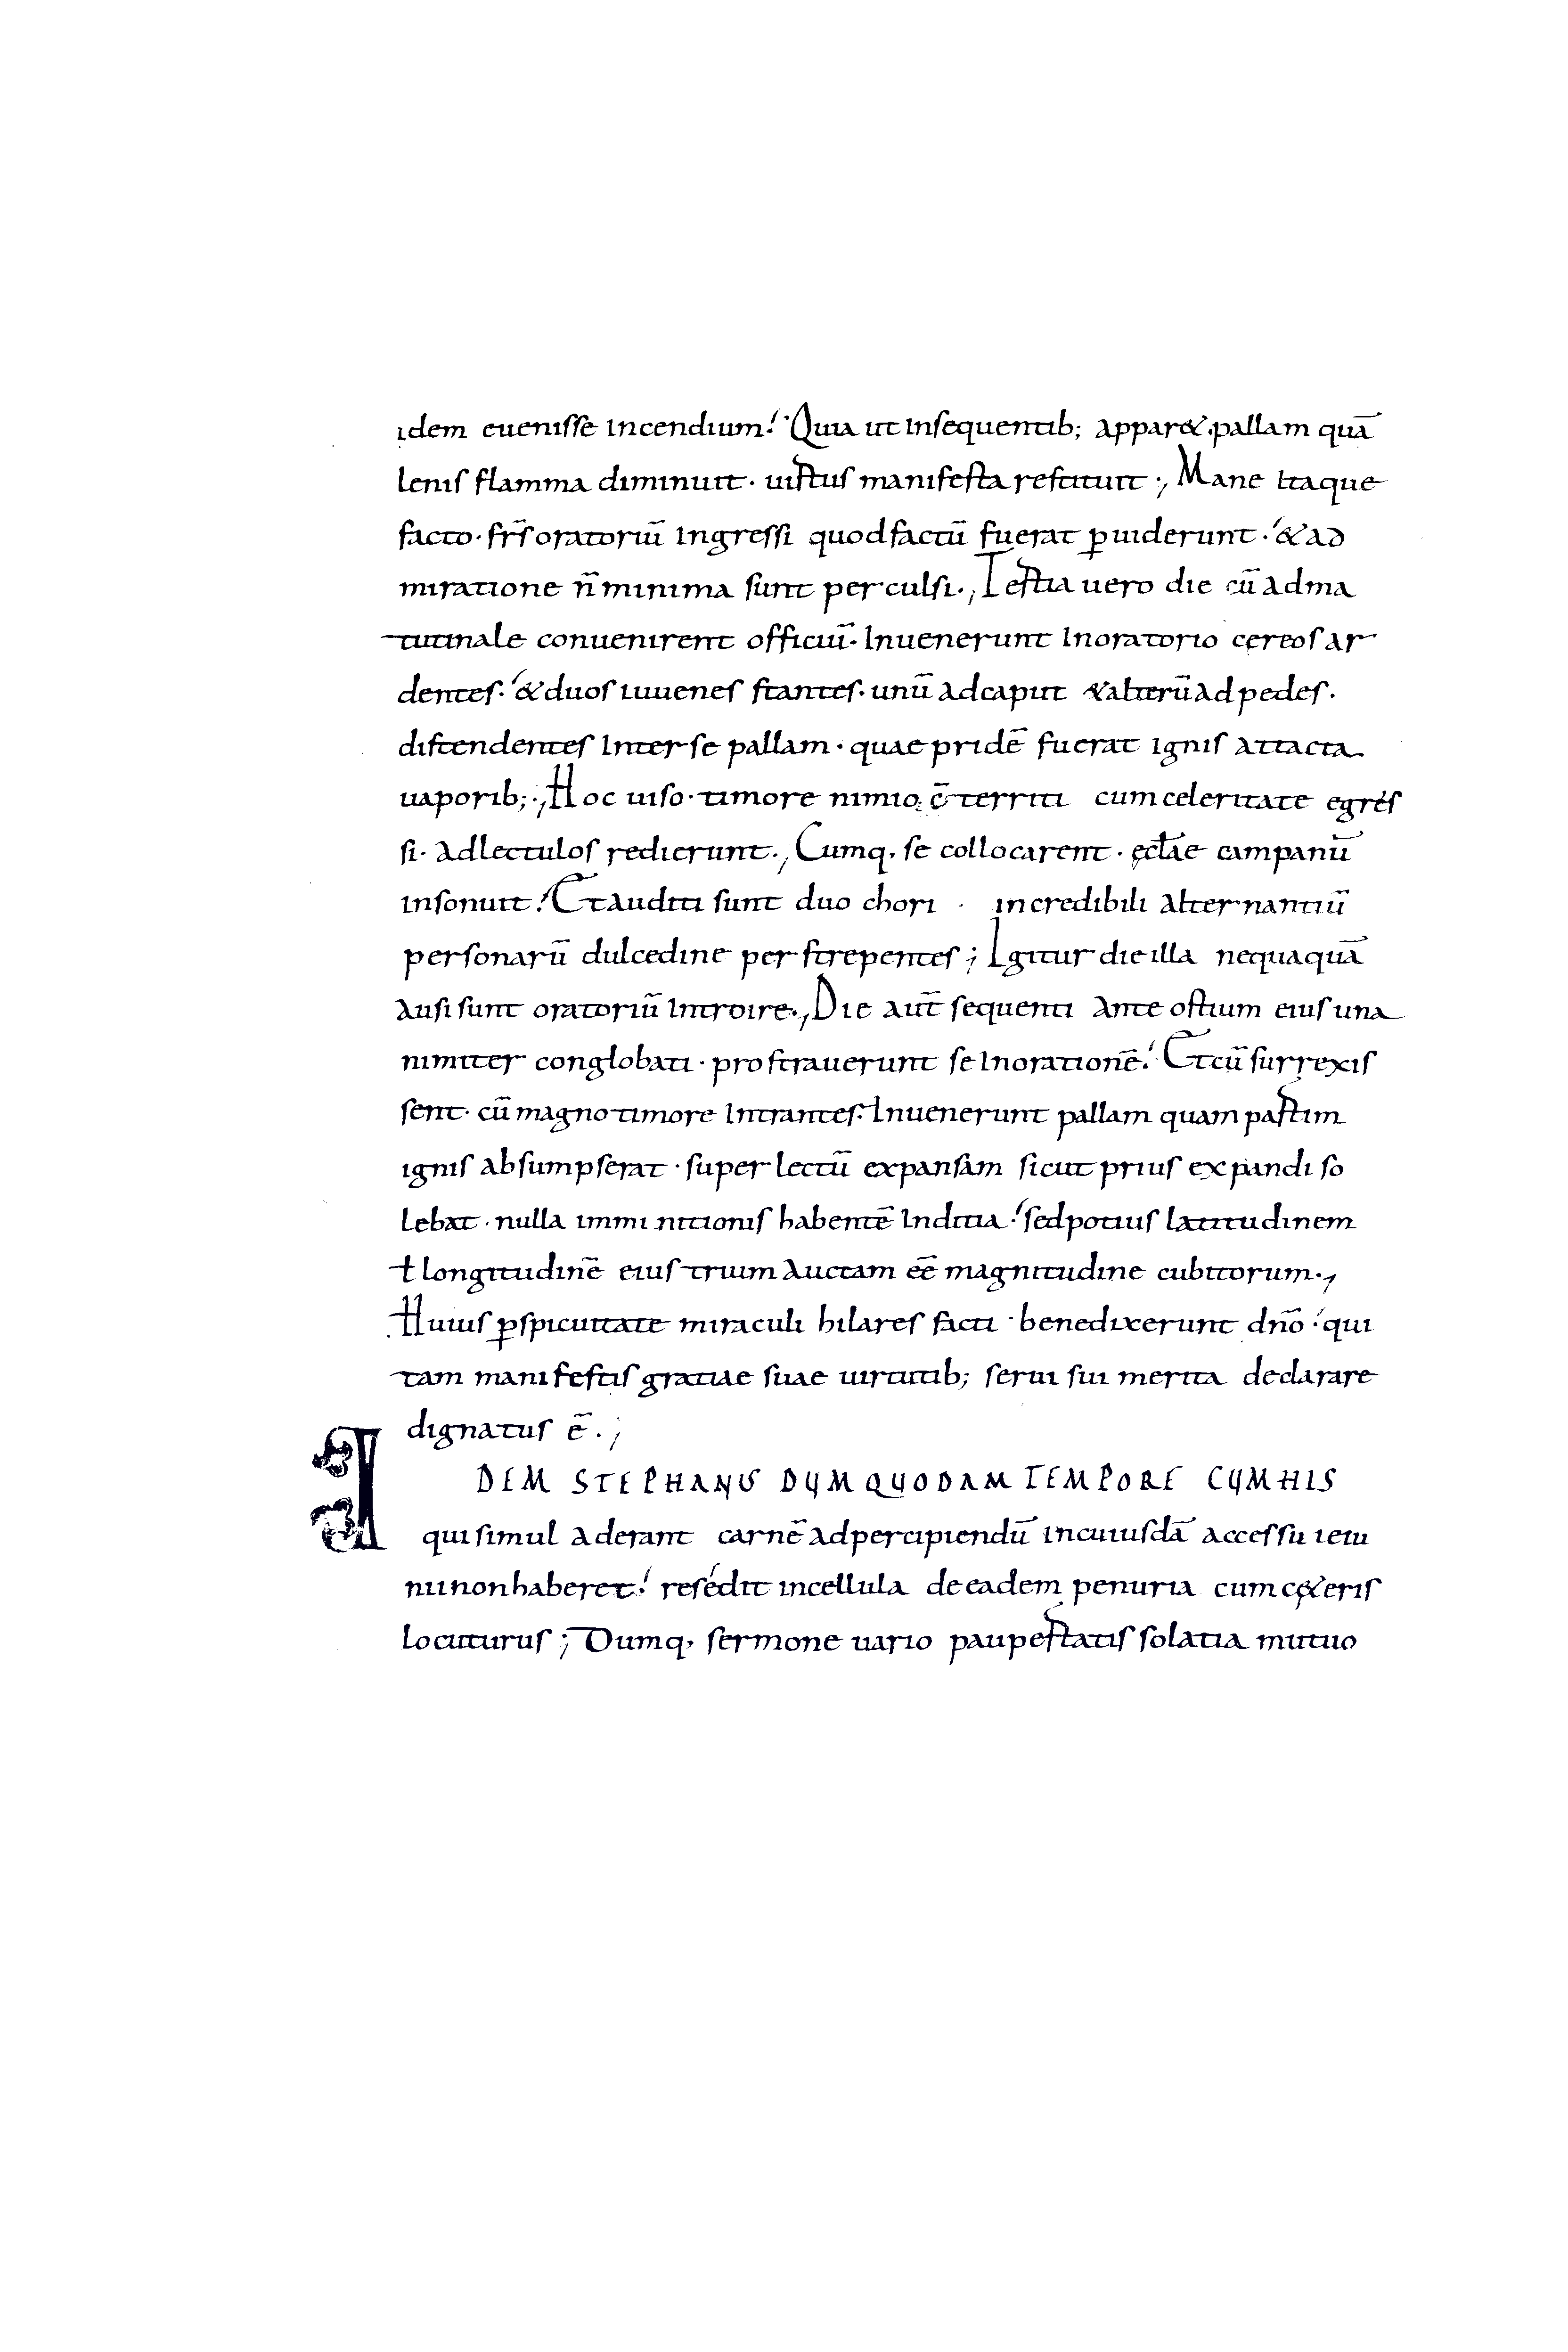 idem eueniſſe incendium! Quia ut inſequentib; appar&. pallam quā
leniſ flamma diminuit · uirtuſ manifeſta reſtituit ·, Mane itaque
facto · fr̄ſ oratoriū ingreſſi quod factū fuerat p̱uiderunt · & ad
miratione n̄ minima ſunt perculſi ·, Tertia uero die cū ad ma
tutinale conuenirent officiū · Inuenerunt in oratorio cereoſ ar
denteſ · & duoſ iuueneſ ſtanteſ · unū ad caput & alterū ad pedeſ ·
diſtendenteſ inter ſe pallam · quae pridē fuerat igniſ attacta
uaporib; ·, Hoc uiſo · timore nimio c̄territi cum celeritate egreſ
ſi · ad lectuloſ redierunt ·, Cumq, ſe collocarent · ęcl̄ae campanū
inſonuit! Et auditi ſunt duo chori · incredibili alternantiū
perſonarū dulcedine perſtrepenteſ ; Igitur die illa nequaquā
auſi ſunt oratoriū introire ·, Die aut̄ ſequenti ante oſtium eiuſ una
nimiter conglobati · proſtrauerunt ſe in orationē! Et cū ſurrexiſ
ſent · cū magno timore intranteſ · Inuenerunt pallam quam partim
igniſ abſumpſerat · ſuper lectū expanſam ſicut priuſ expandi ſo
lebat · nulla imminitioniſ habentē inditia! ſed potiuſ latitudinem
ł longitudinē eiuſ trium auctam eē magnitudine cubitorum ·,
Huiuſ p̱ſpicuitate miraculi hilareſ facti · benedixerunt dn̄o! qui
tam manifeſtiſ gratiae ſuae uirtutib; ſerui ſui merita declarare
dignatuſ ē ·,
IDEM STEPHANUS DUM QUODAM TEMPORE CUM HIS
qui ſimul aderant carnē ad percipiendū in cuiuſdā acceſſu ieiu
nii non haberet! reſedit in cellula de eadem penuria cum cę&eriſ
locuturuſ ; Dumq, ſermone uario paupertatiſ ſolatia mutuo